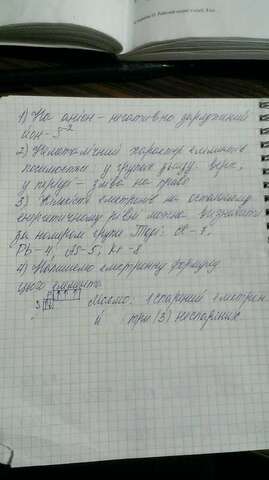 1) На аніон - негативно заряджений
йон - S⁻²
2) Неметалічний характер елементів
посилюється у групах знизу вверх,
у періоді - зліва на право
3) Кількість електронів на останньому
енергетичному рівні можна визначати
за номером групи Тоді:
Pb - 4, As - 5, Kr - 8
4) Напишемо електронну формулу
цього елемента
Маємо: 1 спарений електрон
й три (3) неспарених